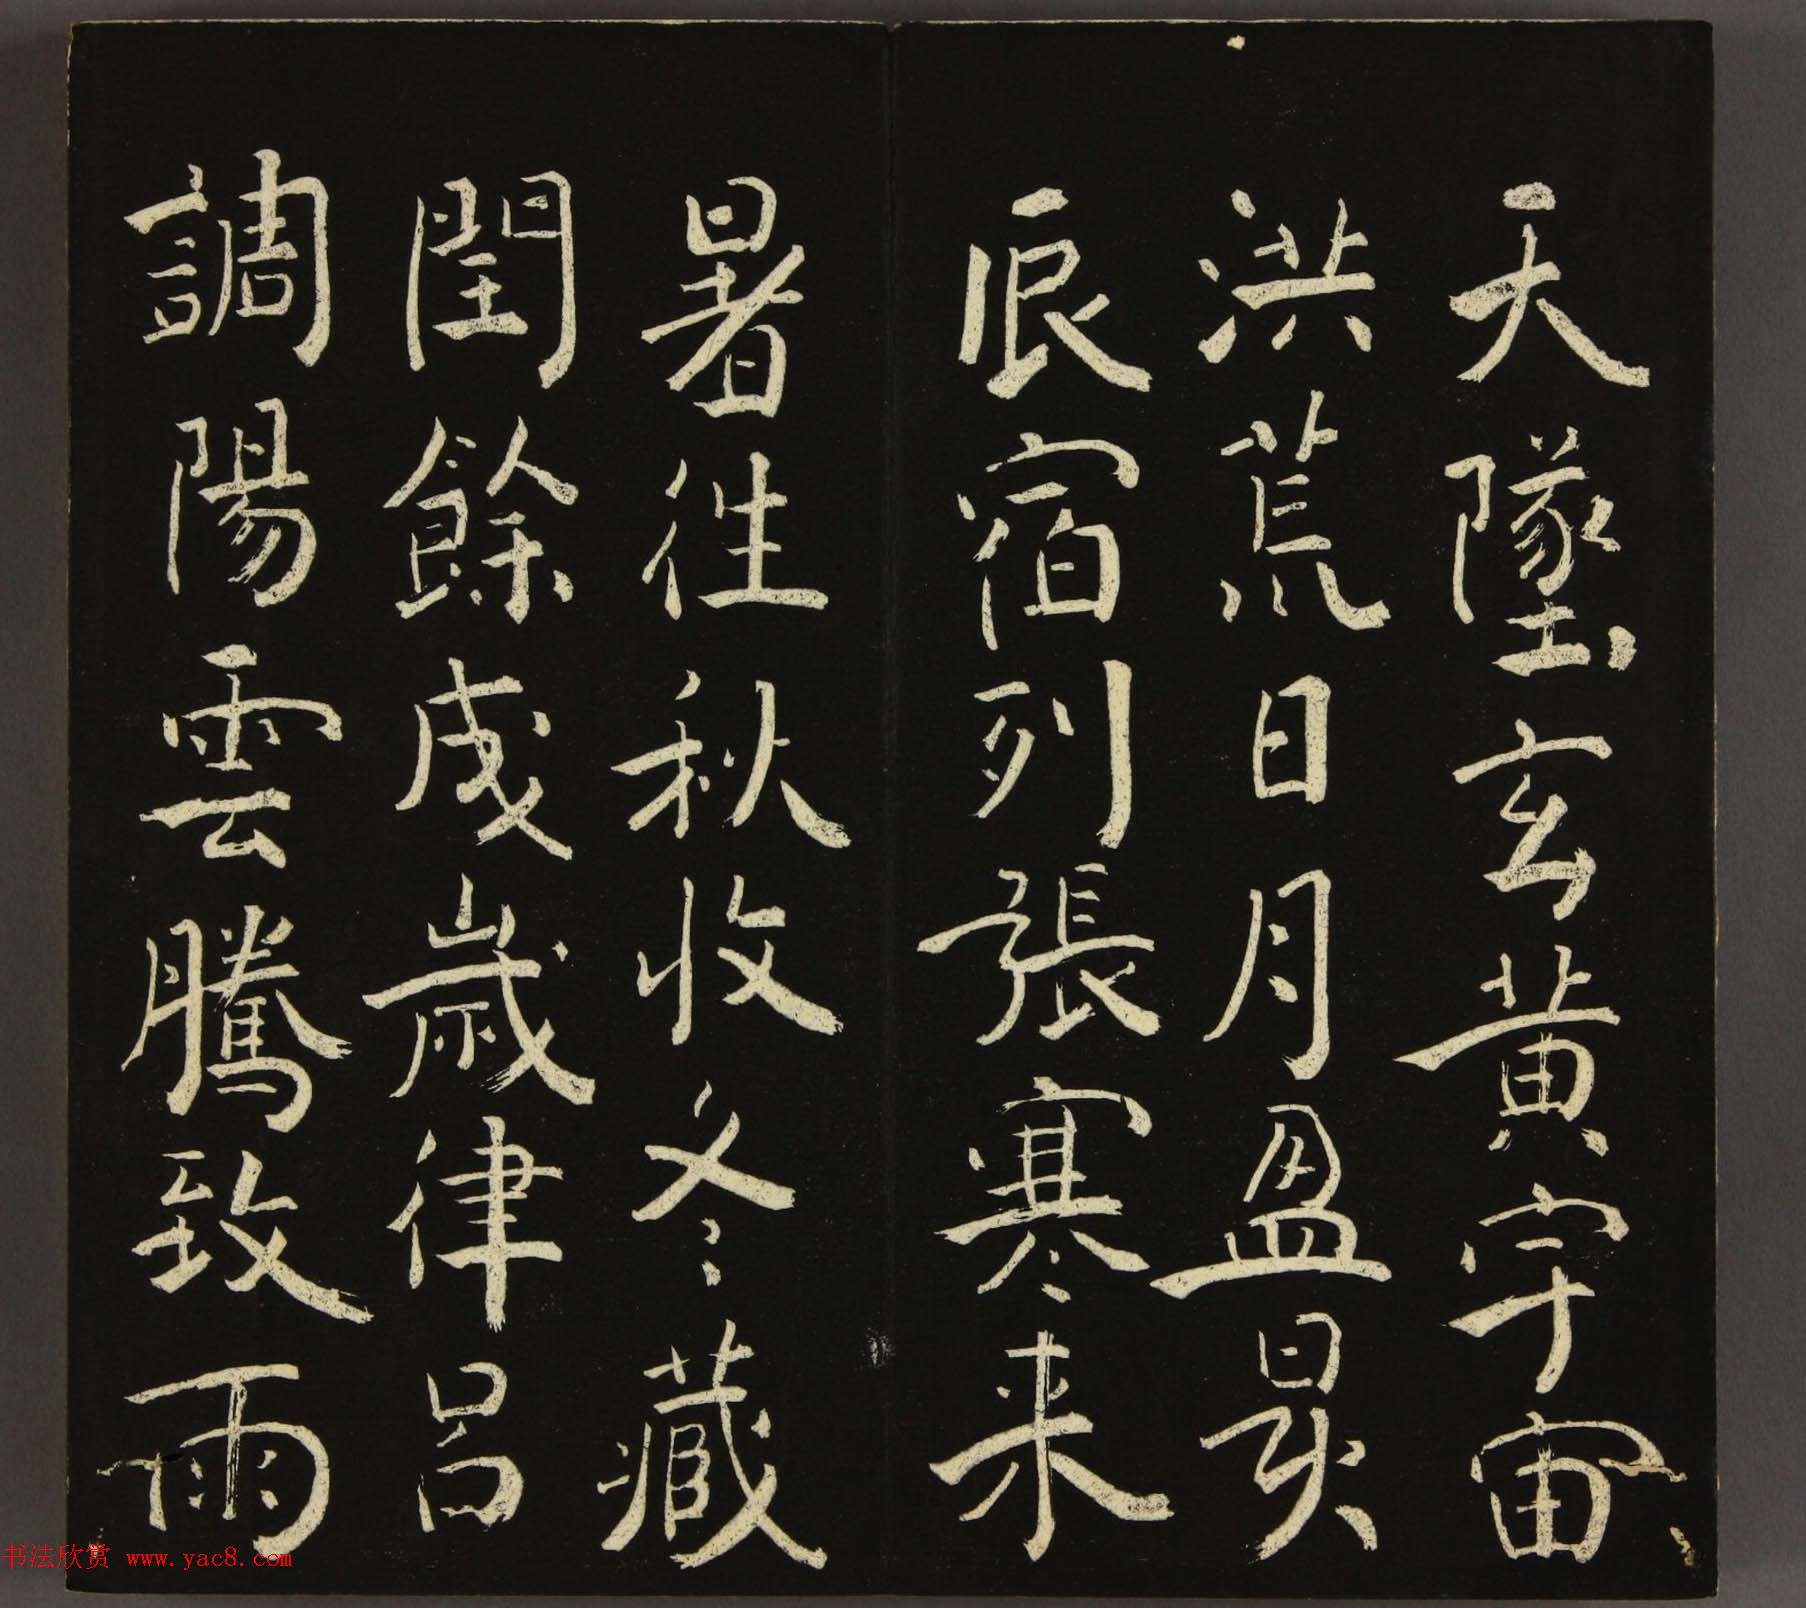 天墬玄黃宇宙
洪荒日月盈昃
辰宿列張寒来
暑往秋收冬藏
閏餘成歲律呂
調陽雲騰致雨
书法欣赏 www.yac8.com